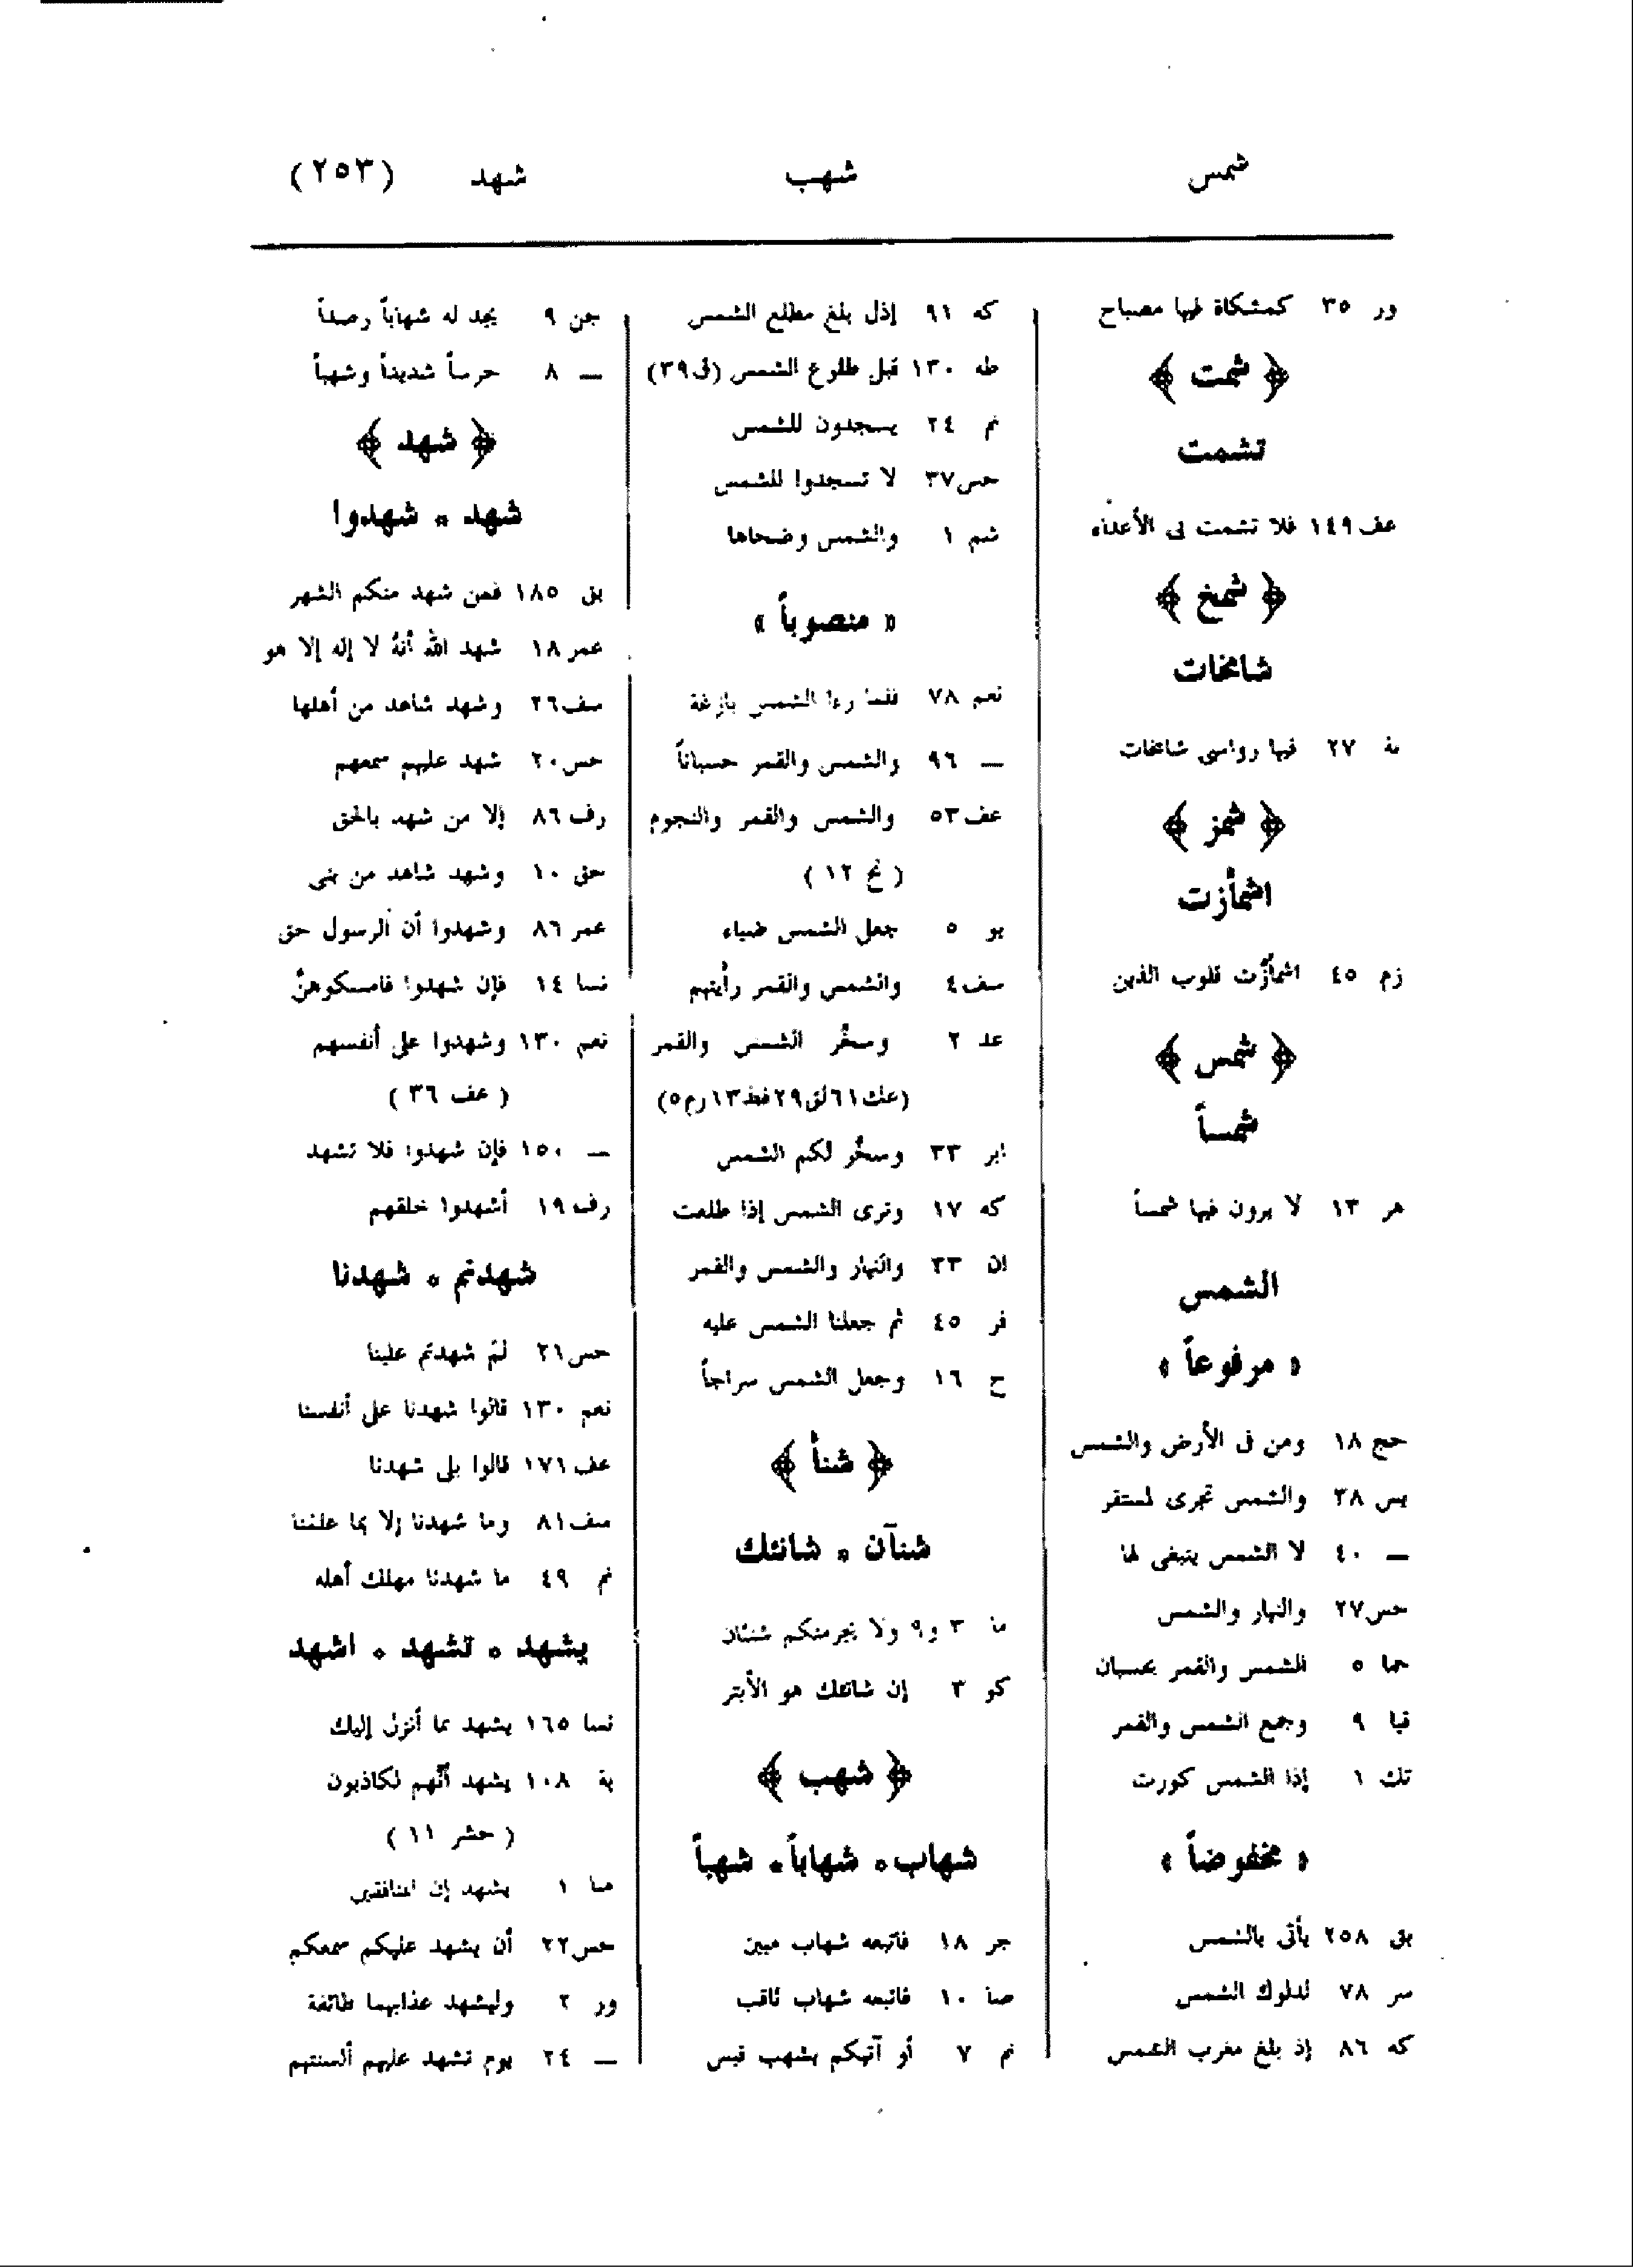 شمس شهب شهد (٢٥٣)
ور ٣٥ كمشكاة فيها مصباح
﴿ شمت ﴾
تشمت
عف ١٤٩ فلا تشمت بى الأعداء
﴿ شمخ ﴾
شامخات
ـة ٢٧ فيها رواسى شامخات
﴿ شمز ﴾
اشمأزت
زم ٤٥ اشمأزَّت قلوب الذين
﴿ شمس ﴾
شمساً
هر ١٣ لا يرون فيها شمساً
الشمس
« مرفوعاً »
حج ١٨ ومن فى الأرض والشمس
يس ٣٨ والشمس تجرى لمستقر
ــ ٤٠ لا الشمس ينبغى لها
حس ٣٧ والنهار والشمس
حما ٥ الشمس والقمر بحسبان
قيا ٩ وجمع الشمس والقمر
تك ١ إذا الشمس كورت
« مخفوضاً »
بق ٢٥٨ يأتى بالشمس
سر ٧٨ لدلوك الشمس
كه ٨٦ إذ بلغ مغرب الشمس
كه ٩١ إذل بلغ مطلع الشمس
طه ١٣٠ قبل طلوع الشمس (ق ٣٩)
نم ٢٤ يسجدون للشمس
حس ٣٧ لا تسجدوا للشمس
شم ١ والشمس وضحاها
« منصوباً »
نعم ٧٨ فلما رءا الشمس بازغة
ــ ٩٦ والشمس والقمر حسباناً
عف ٥٣ والشمس والقمر والنجوم
( نح ١٢ )
يو ٥ جعل الشمس ضياء
سف ٤ والشمس والقمر رأيتهم
عد ٢ وسخَّر الشمس والقمر
(عنك ٦١ لق ٢٩ فط ١٣ زم ٥)
ابر ٣٣ وسخَّر لكم الشمس
كه ١٧ وترى الشمس إذا طلعت
ان ٣٣ والنهار والشمس والقمر
فر ٤٥ ثم جعلنا الشمس عليه
ح ١٦ وجعل الشمس سراجاً
﴿ شنأ ﴾
شنآن * شانئك
ما ٣ و٩ ولا يجرمنكم شنئان
كو ٣ إن شانئك هو الأبتر
﴿ شهب ﴾
شهاب * شهاباً * شهباً
جر ١٨ فاتبعه شهاب مبين
صا ١٠ فاتبعه شهاب ثاقب
نم ٧ أو آتيكم بشهب قبس
جن ٩ يجد له شهاباً رصداً
ــ ٨ حرساً شديداً وشهباً
﴿ شهد ﴾
شهد * شهدوا
بق ١٨٥ فمن شهد منكم الشهر
عمر ١٨ شهد الله أنه لا إله إلا هو
سف ٢٦ وشهد شاهد من أهلها
حس ٢٠ شهد عليهم سمعهم
رف ٨٦ إلا من شهد بالحق
حق ١٠ وشهد شاهد من بنى
عمر ٨٦ وشهدوا أن الرسول حق
نسا ١٤ فإن شهدوا فامسكوهنَّ
نعم ١٣٠ وشهدوا على أنفسهم
( عف ٣٦ )
ــ ١٥٠ فإن شهدوا فلا تشهد
رف ١٩ أشهدوا خلقهم
شهدتم * شهدنا
حس ٢١ لمَ شهدتم علينا
نعم ١٣٠ قالوا شهدنا على أنفسنا
عف ١٧١ قالوا بلى شهدنا
سف ٨١ وما شهدنا إلا بما علمنا
نم ٤٩ ما شهدنا مهلك أهله
يشهد * تشهد * اشهد
نسا ١٦٥ يشهد بما أنزل إليك
بة ١٠٨ يشهد أنَّهم لكاذبون
( حشر ١١ )
ـنا ١ يشهد إن المنافقين
حس ٢٢ أن يشهد عليكم سمعكم
ور ٢ وليشهد عذابهما طائفة
ــ ٢٤ يوم تشهد عليهم ألسنتهم